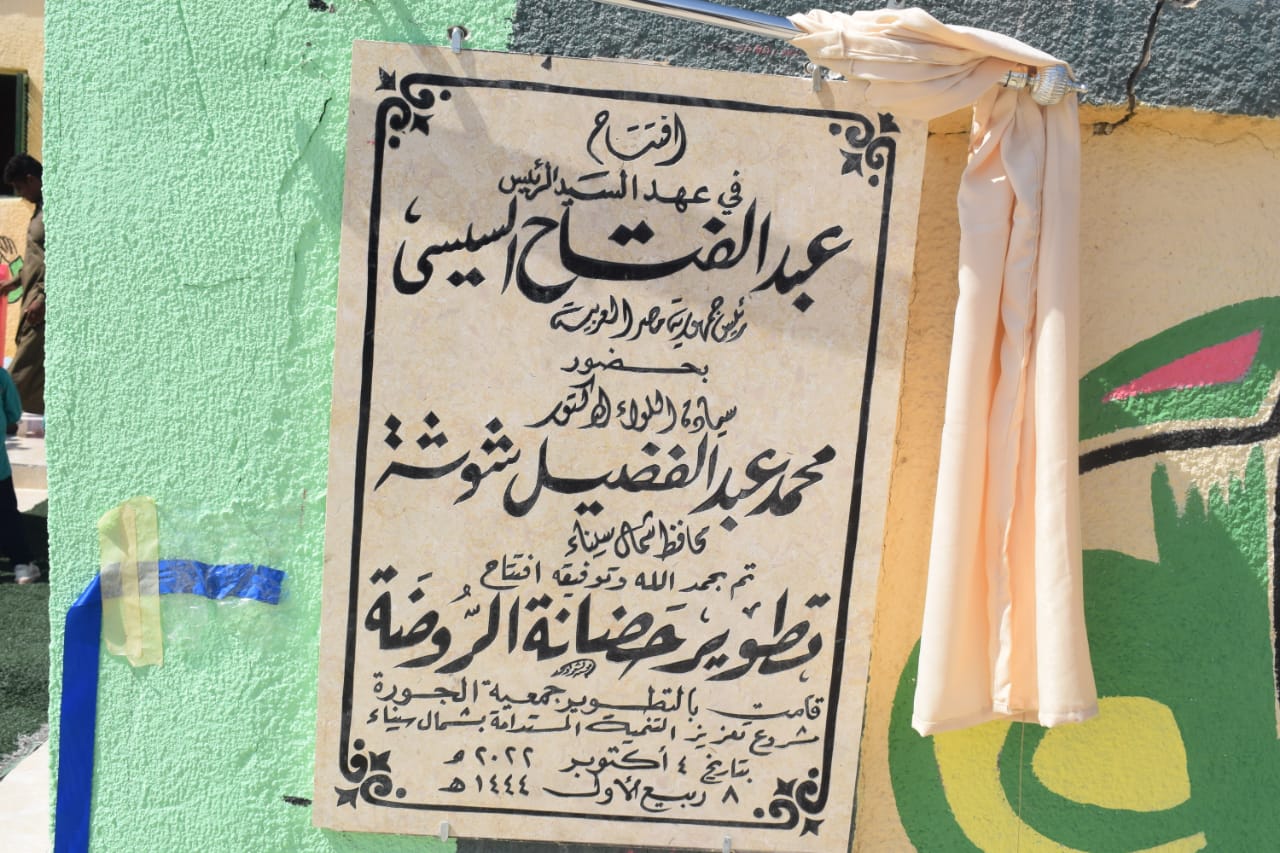 افتتاح
في عهد السيد الرئيس
عبد الفتاح السيسى
رئيس جمهورية مصر العربية
بحضور
سيادة اللواء الدكتور
محمد عبد الفضيل شوشة
محافظ شمال سيناء
تم بحمد الله وتوفيقه افتتاح
تطوير حَضانة الرُّوضَة
قامت بالتطوير جمعية الجورة
مشروع تعزيز التنمية المستدامة بشمال سيناء
بتاريخ ٤ أكتوبر ٢٠٢٢ م
٨ ربيع الأول ١٤٤٤ هـ